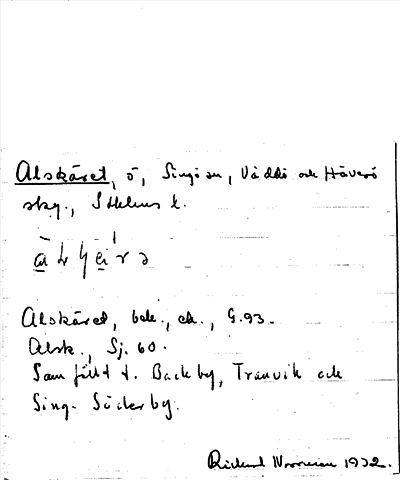 Alskäret, ö, Singö sn, Väddö och Häverö
skg., Sthlms l.
Alskäret, beb., ek., G.93.
Alsk., Sj. 60.
Samfällt t. Backby, Tranvik och
Sing. Söderby.
Rickard 1932.